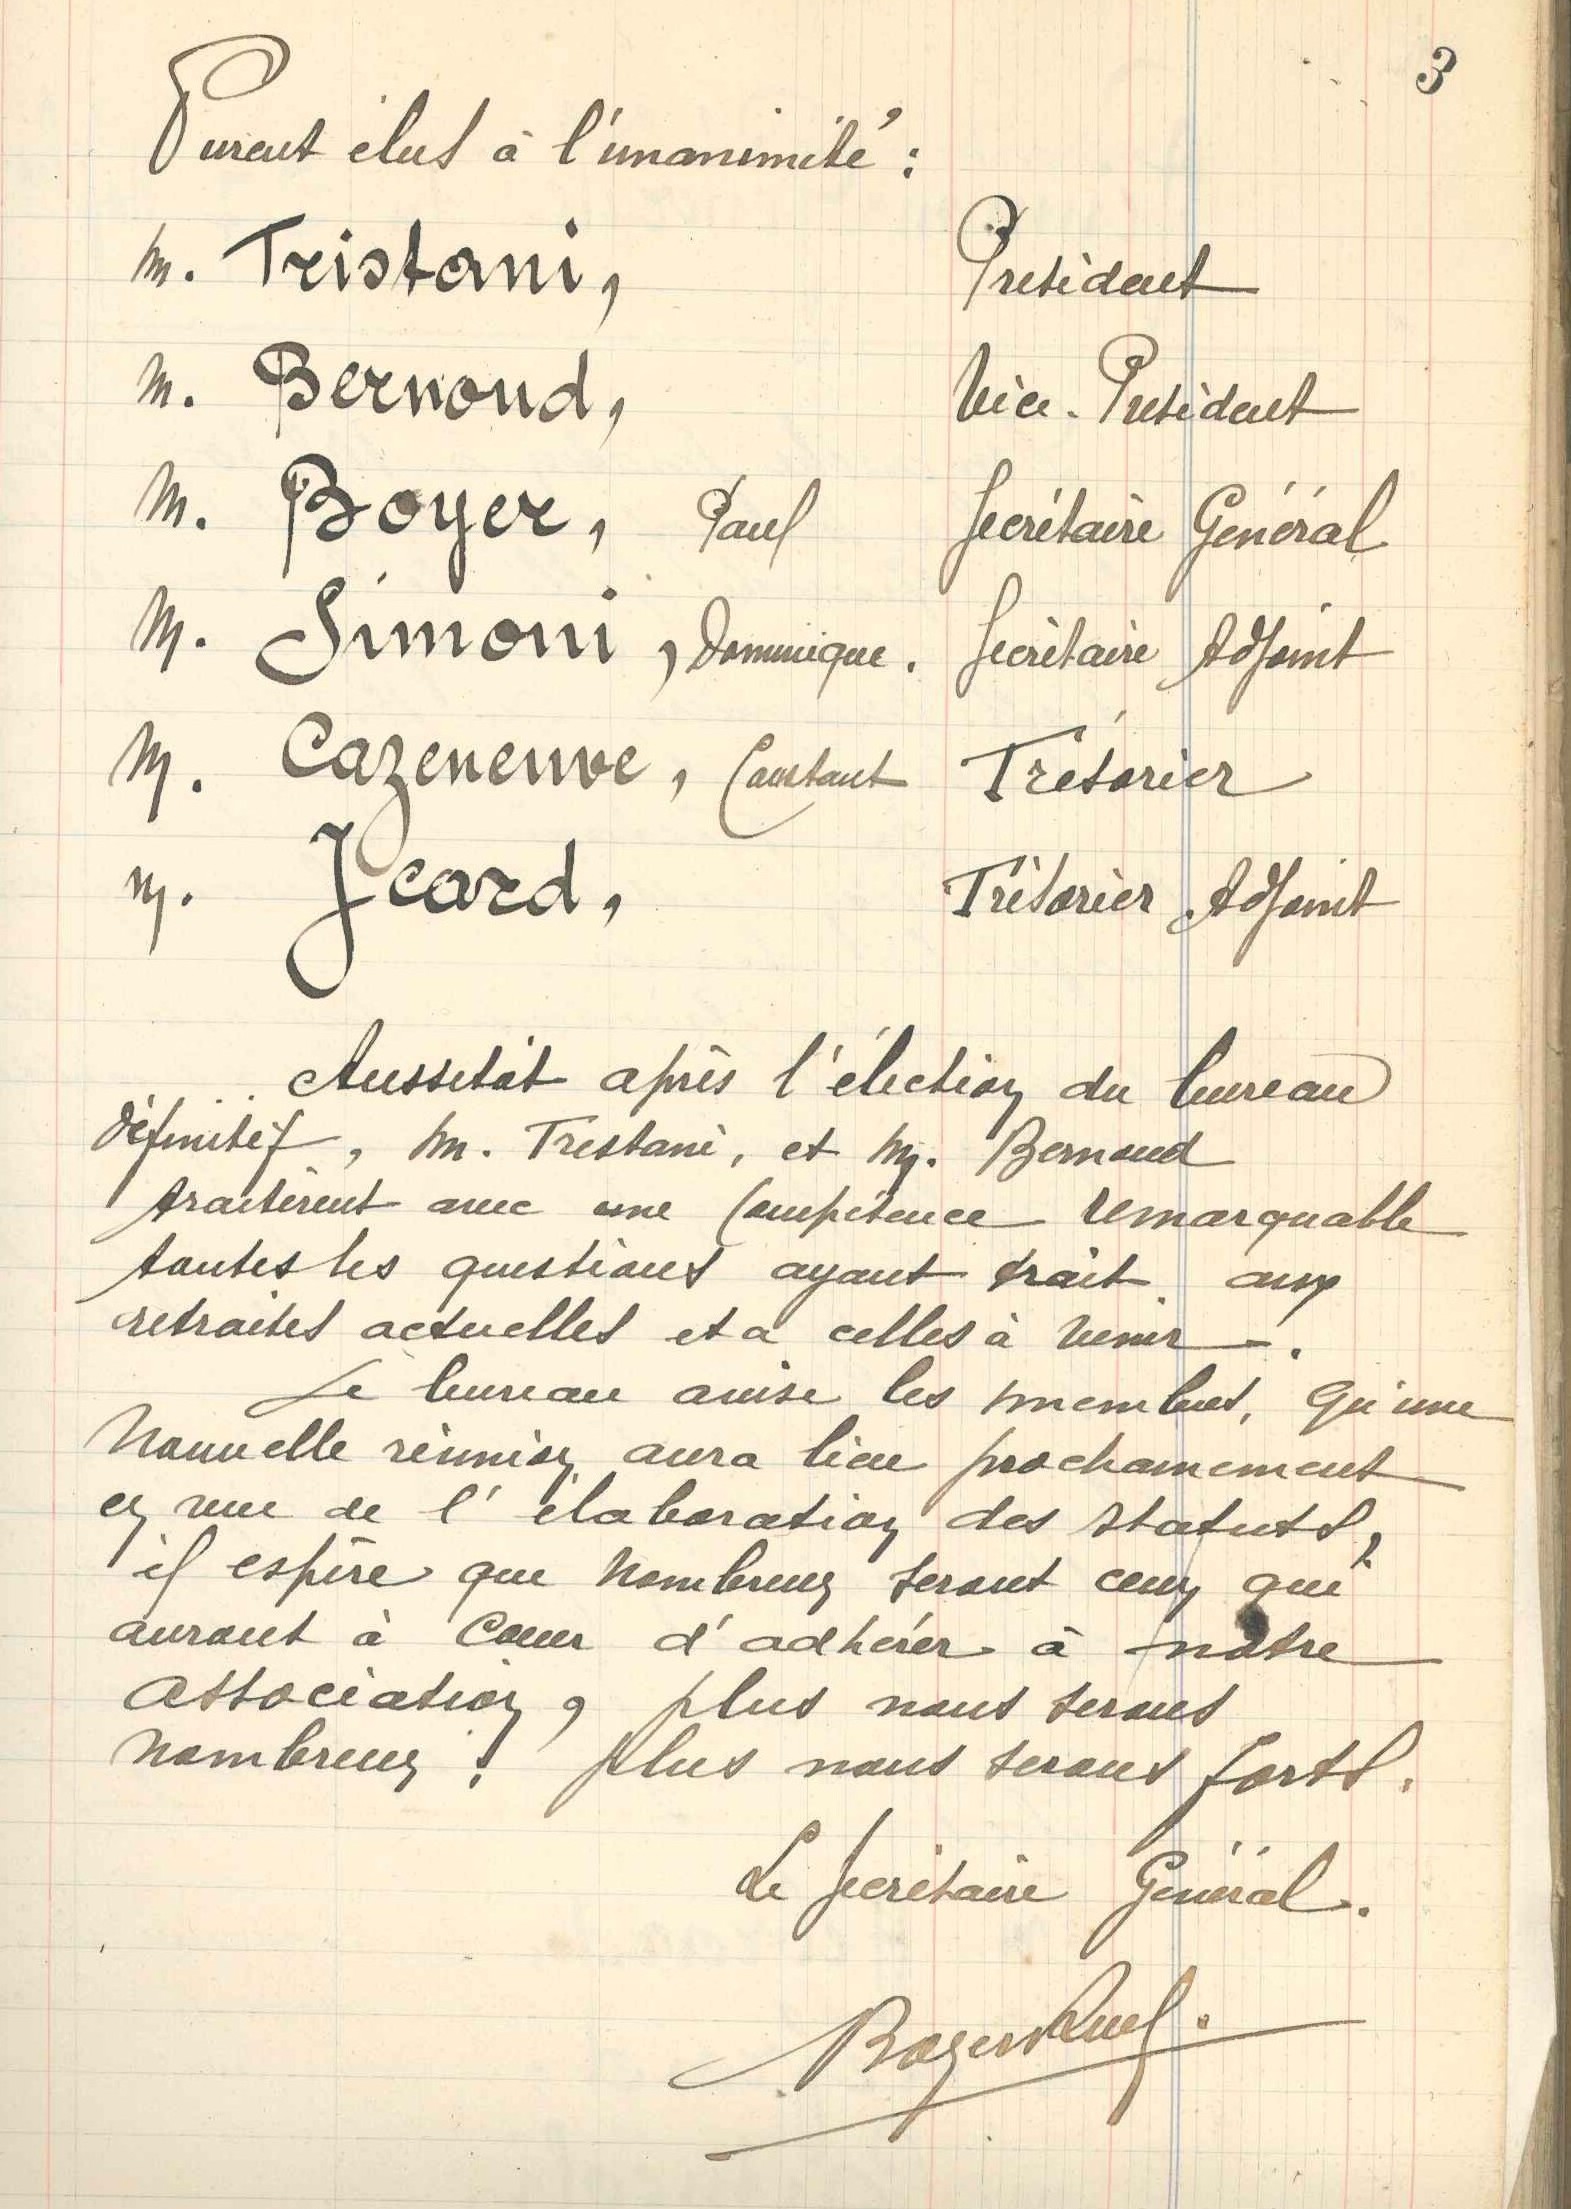 3
Furent élus à l'unanimité :
M. Tristani, Président
M. Bernoud, Vice-Président
M. Boyer, Paul Secrétaire Général
M. Simoni, Dominique. Secrétaire Adjoint
M. Cazeneuve, Constant Trésorier
M. Icard, Trésorier Adjoint
Aussitôt après l'élection du bureau
définitif, M. Tristani, et M. Bernoud
traitèrent avec une compétence remarquable
toutes les questions ayant trait aux
retraites actuelles et a celles à venir -.
Le bureau avise les membres, qu'une
nouvelle réunion aura lieu prochainement
en vue de l'élaboration des statuts,
il espère que nombreux seront ceux qui
auront à coeur d'adhérer à notre
association, plus nous serons
nombreux ; plus nous serons forts.
Le Secrétaire Général.
Boyer Paul.